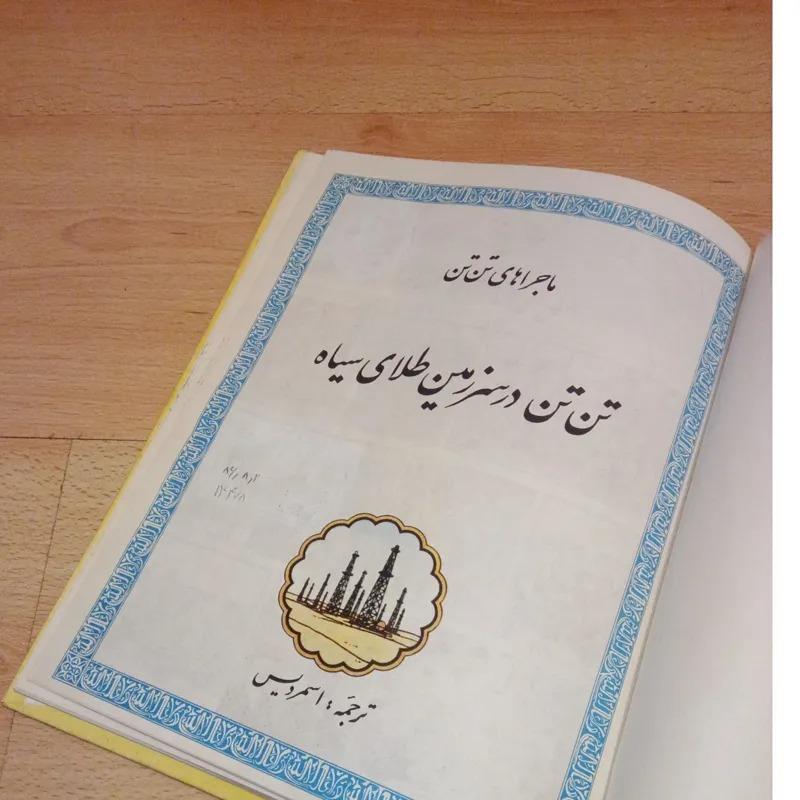 ماجراهای تن تن
تن تن در سرزمین طلای سیاه
ترجمه : اسمردیس